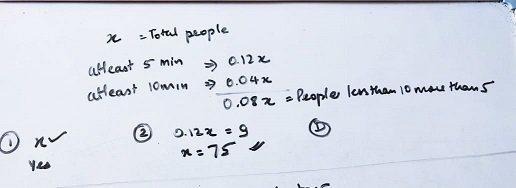 x = Total people
atleast 5 min ⇒ 0.12x
atleast 10min ⇒ 0.04x
0.08x = People less than 10 more than 5
① x✓ ② 0.12x = 9 Ⓓ
Yes x = 75